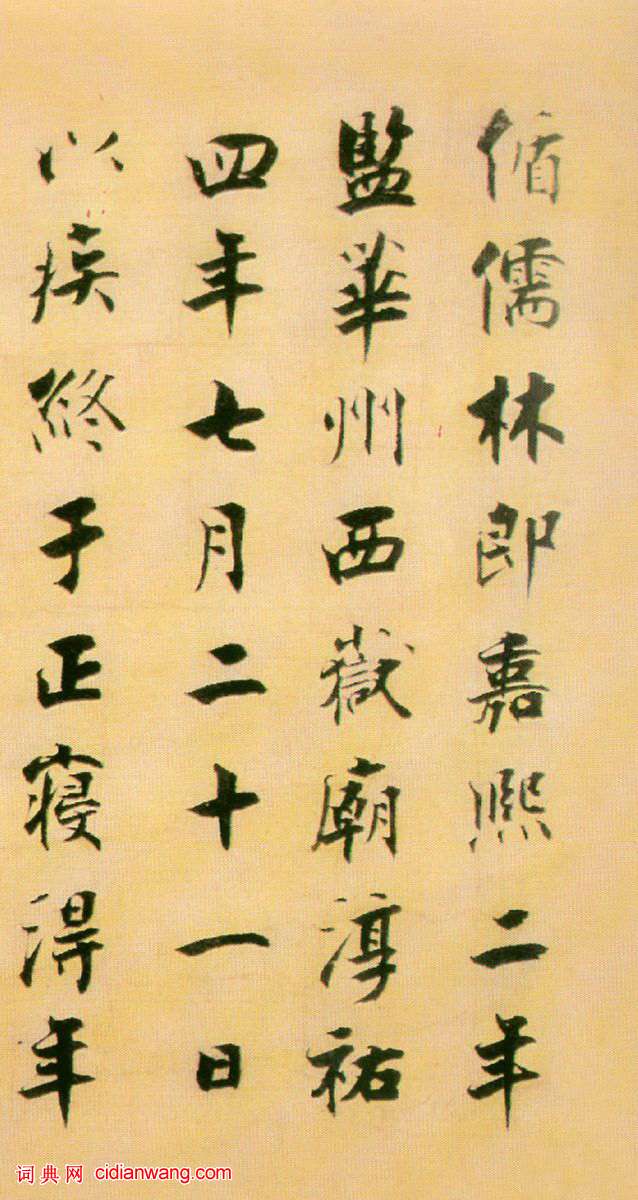 循儒林郎嘉熙二年
監華州西嶽廟淳祐
四年七月二十一日
以疾終于正寢得年
词典网 cidianwang.com